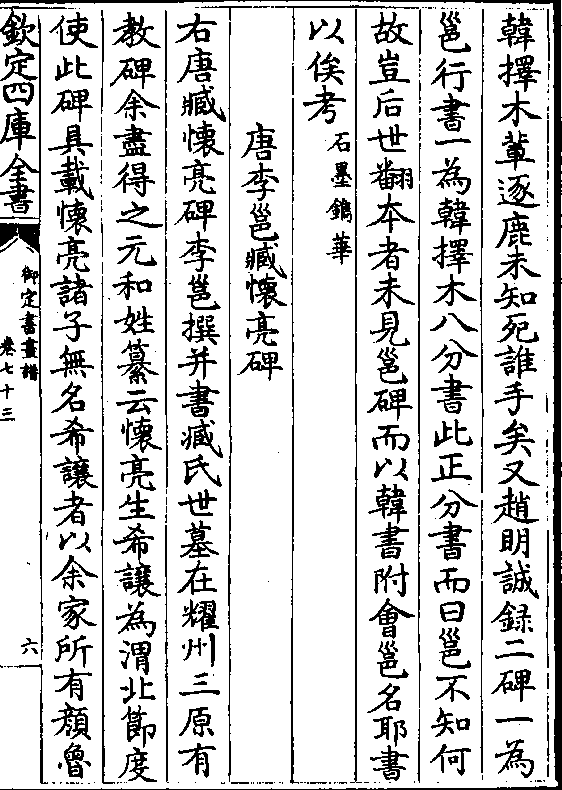 韓擇木軰逐鹿未知死誰手矣又趙明誠録二碑一為
邕行書一為韓擇木八分書此正分書而曰邕不知何
故豈后世翻本者未見邕碑而以韓書附會邕名耶書
以俟考石墨鐫華
唐李邕臧懐亮碑
右唐臧懐亮碑李邕撰并書臧氏世墓在耀州三原有
数碑余盡得之元和姓纂云懐亮生希讓為渭北節度
使此碑具載懐亮諸子無名希讓者以余家所有顔魯
欽定四庫全書
御定書畫譜
卷七十三
六